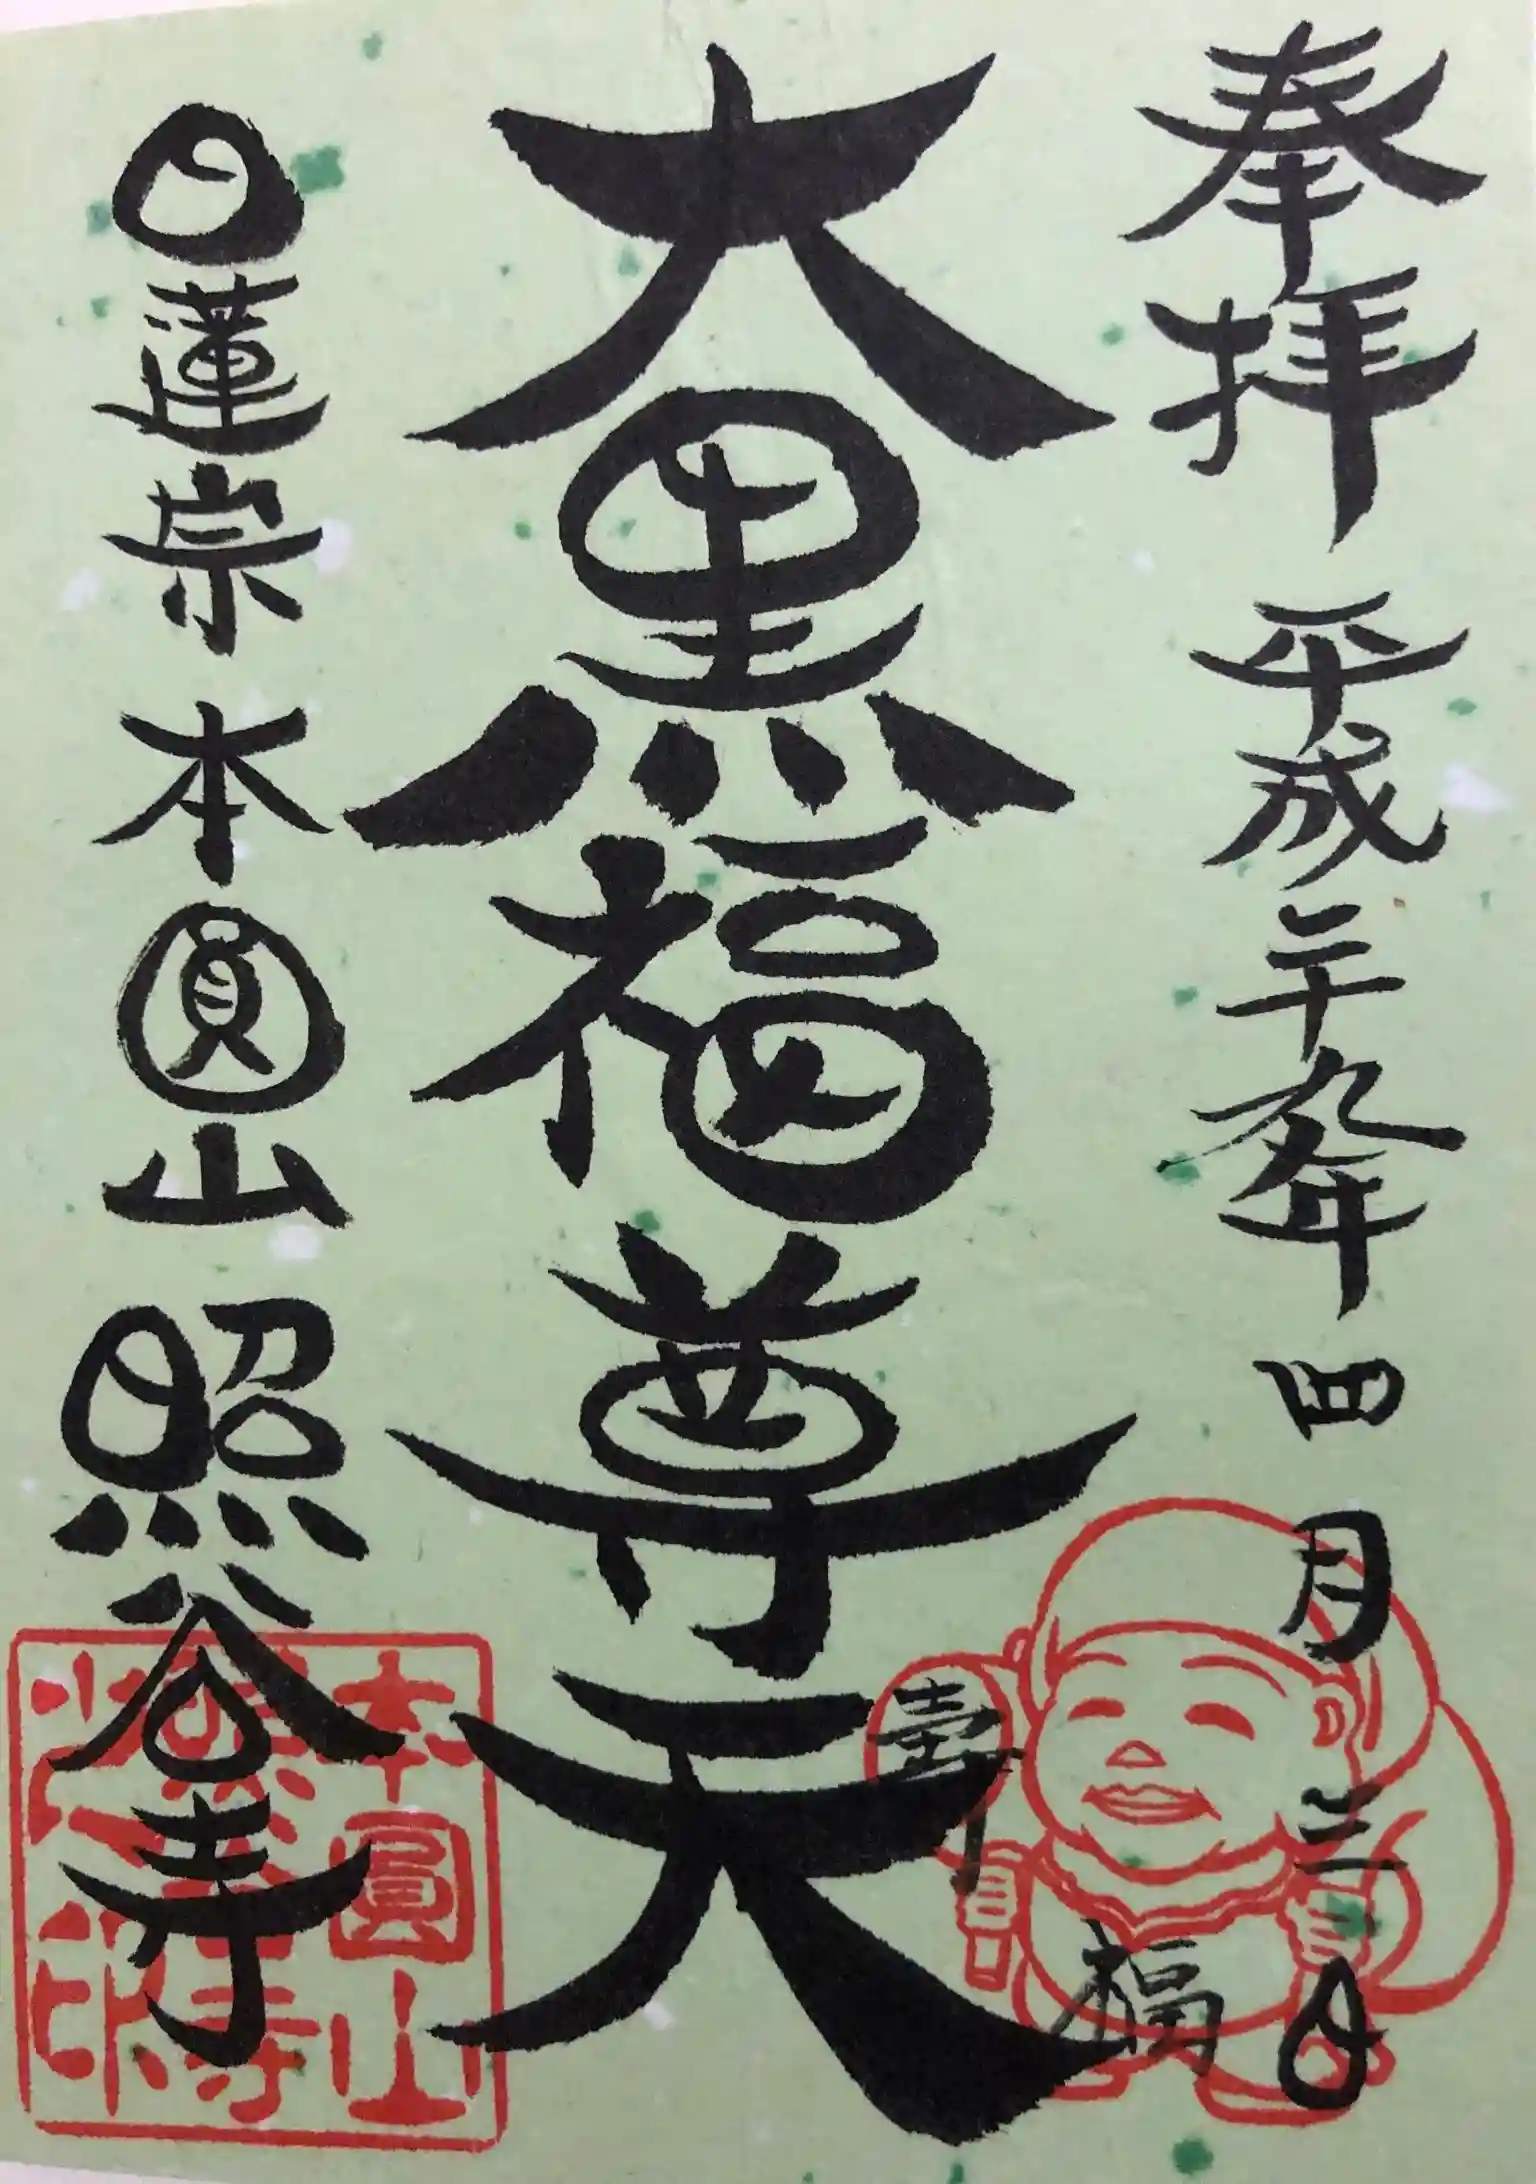 奉拝 平成二十九年 四月 三日
大黒福尊天
日蓮宗 本圓山 照谷寺
壽
福
本圓山
照谷寺